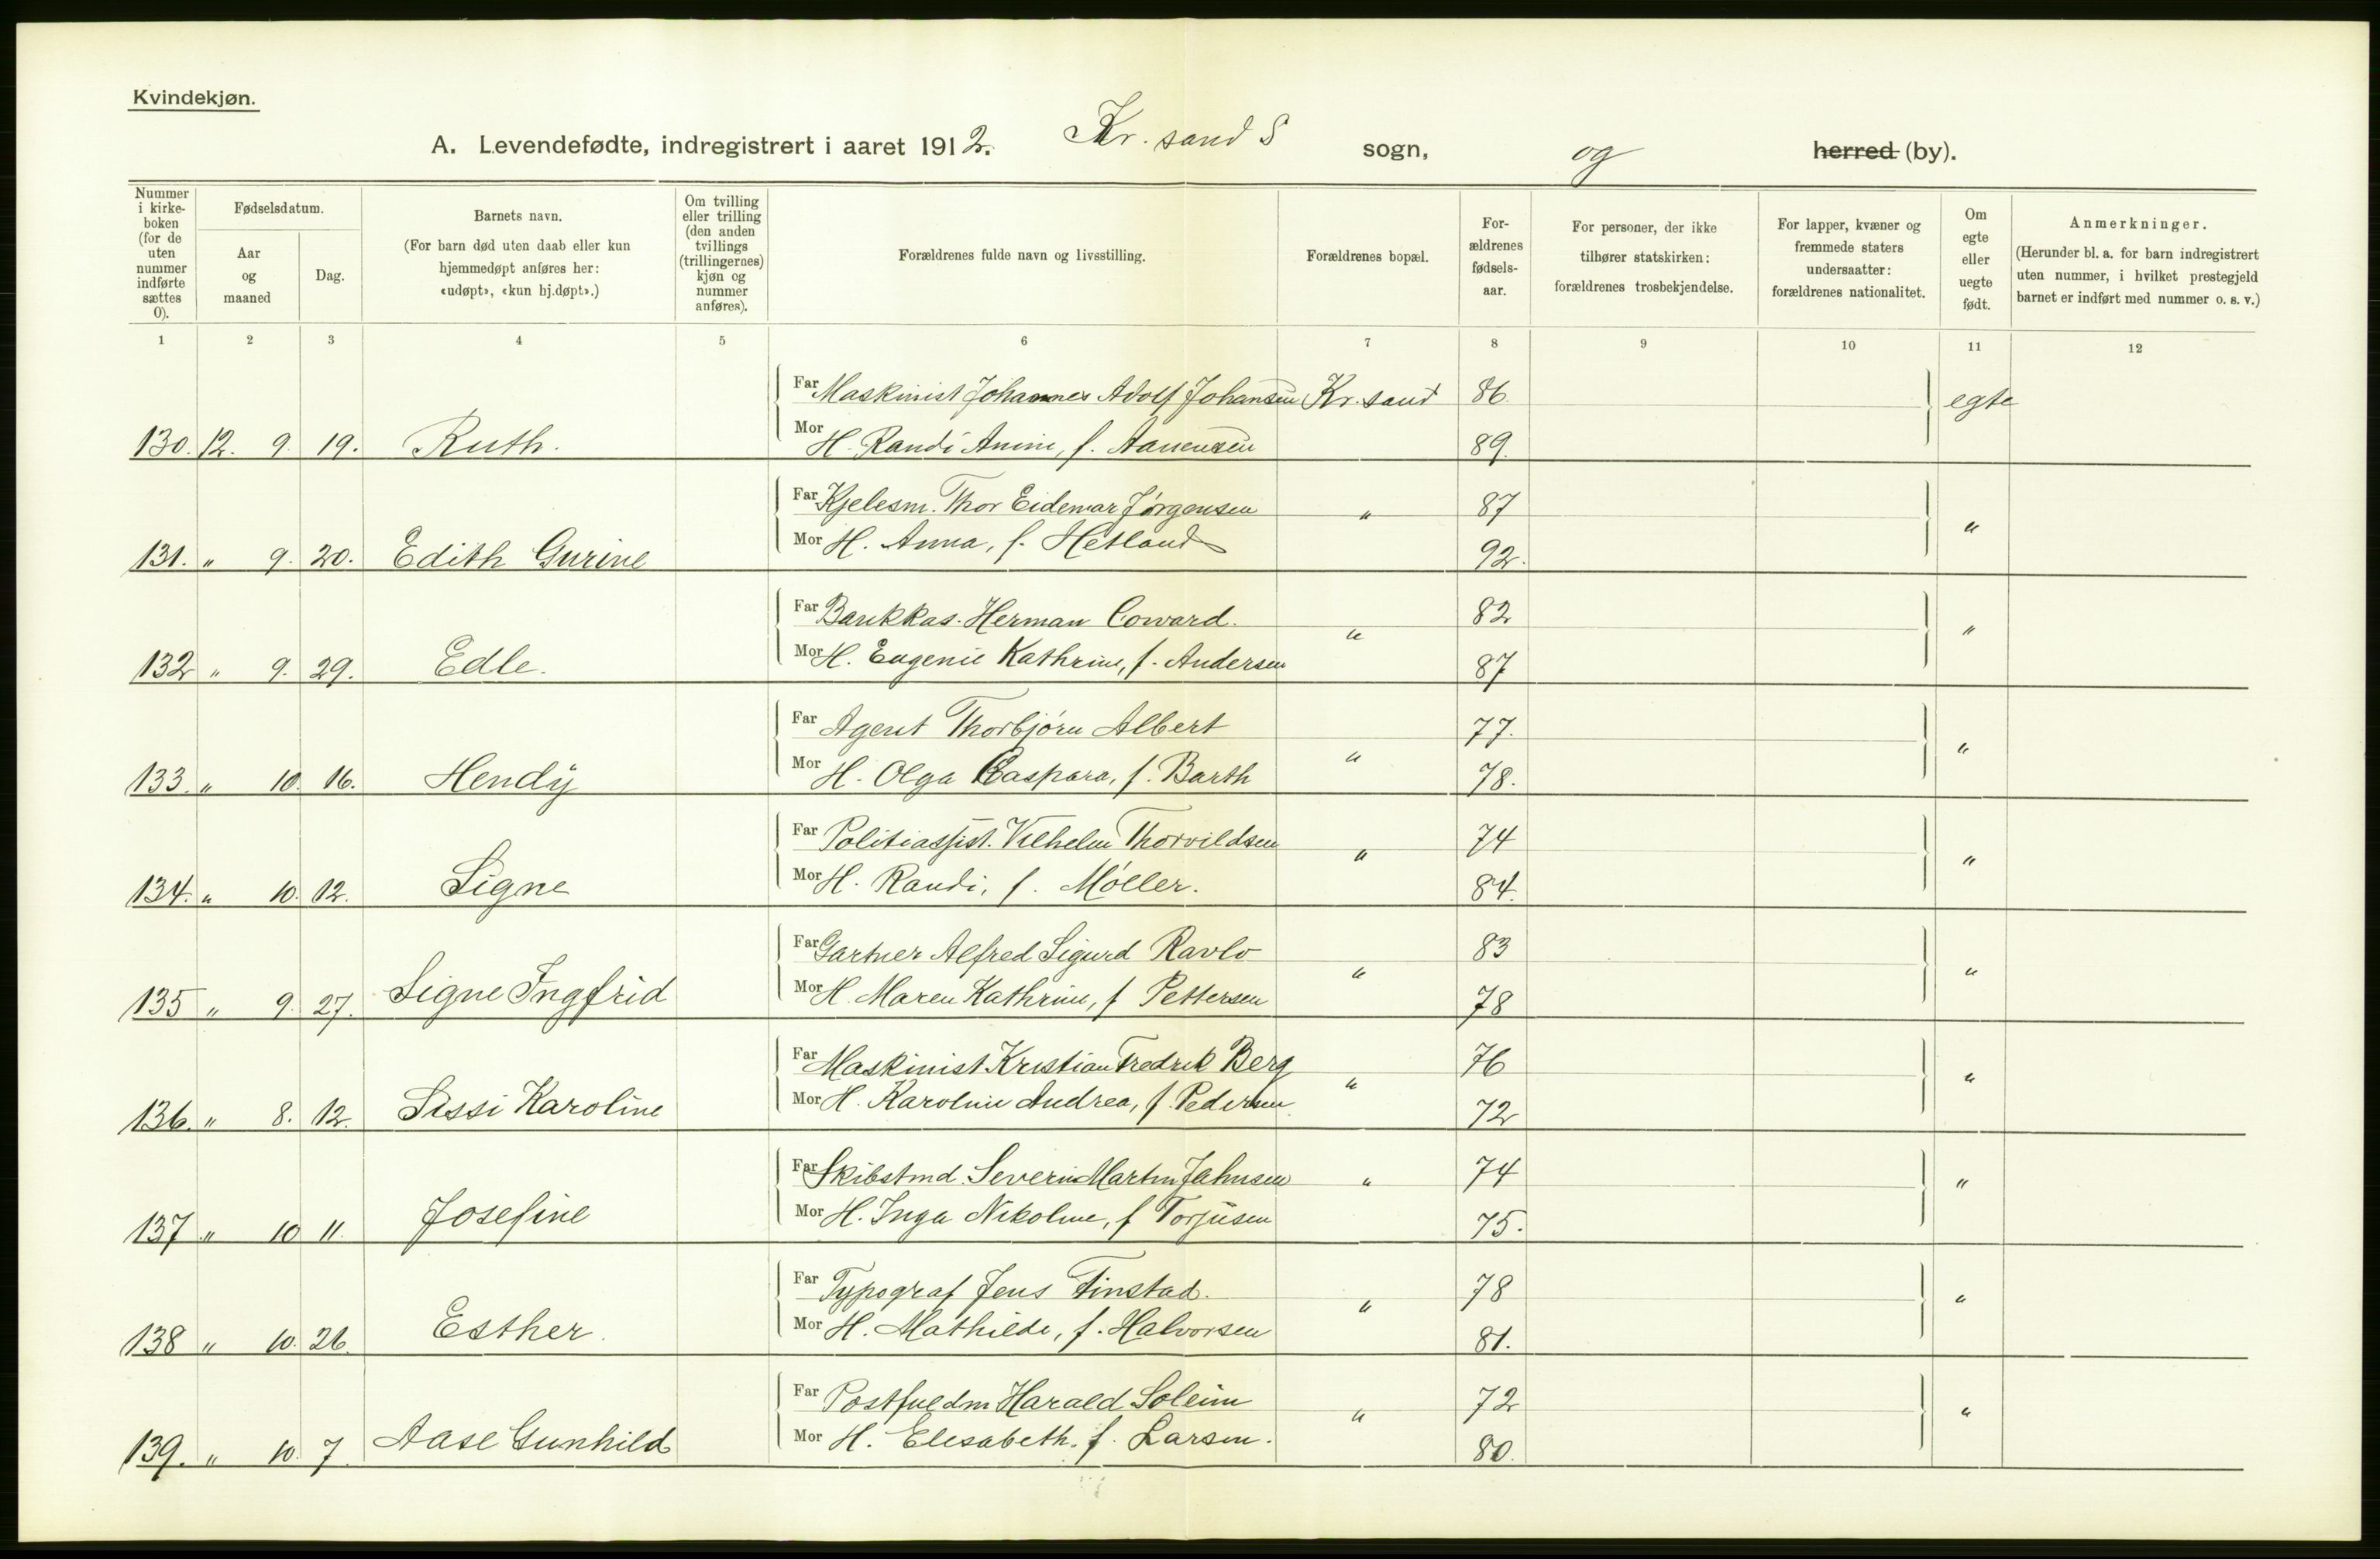 Kvindekjøn.
A. Levendefødte, indregistrert i aaret 1912. Kr. sand S sogn, og herred (by).
Nummer i kirke-boken (for de uten nummer indførte sættes 0).
Fødselsdatum.
Aar og maaned
Dag.
Barnets navn.
(For barn død uten daab eller kun hjemmedøpt anføres her: «udøpt», «kun hj.døpt».)
Om tvilling eller trilling (den anden tvillings (trillingernes) kjøn og nummer anføres).
Forældrenes fulde navn og livsstilling.
Forældrenes bopæl.
For-ældrenes fødsels-aar.
For personer, der ikke tilhører statskirken: forældrenes trosbekjendelse.
For lapper, kvæner og fremmede staters undersaatter: forældrenes nationalitet.
Om egte eller uegte født.
Anmerkninger.
(Herunder bl. a. for barn indregistrert uten nummer, i hvilket prestegjeld barnet er indført med nummer o. s. v.)
1 2 3 4 5 6 7 8 9 10 11 12
Far Maskinist Johannes Adolf Johansen Kr. sand 86. egte
130. 12. 9. 19. Ruth. Mor H. Randi Anine, f. Aanensen 89.
Far Kjelesm. Thor Eidemar Jørgensen " 87 "
131. " 9. 20. Edith Gurine Mor H. Anna, f. Hetland 92.
Far Bankkas. Herman Coward. " 82 "
132 " 9. 29. Edle. Mor H. Eugenie Kathrine, f. Andersen 87
Far Agent Thorbjørn Albert " 77. "
133. " 10. 16. Hendy Mor H. Olga Caspara, f. Barth 78.
Far Politiassist. Vilhelm Thorvildsen " 74 "
134. " 10. 12. Signe Mor H. Randi, f. Møller. 84.
Far Gartner Alfred Sigurd Ravlo " 83 "
135 " 9. 27. Signe Ingfrid Mor H. Maren Kathrine, f Pettersen 78
Far Maskinist Kristian Fredrik Berg " 76 "
136. " 8. 12. Sissi Karoline Mor H. Karoline Andrea, f. Pedersen 72
Far Skibstmd. Severin Martin Jahnsen " 74 "
137 " 10 11. Josefine Mor H. Inga Nikoline, f Torjusen 75.
Far Typograf Jens Finstad. " 78 "
138 " 10. 26. Esther. Mor H. Mathilde, f. Halvorsen 81.
Far Postfuldm Harald Soleim " 72 "
139. " 10. 7. Aase Gunhild Mor H. Elisabeth. f. Larsen. 80.